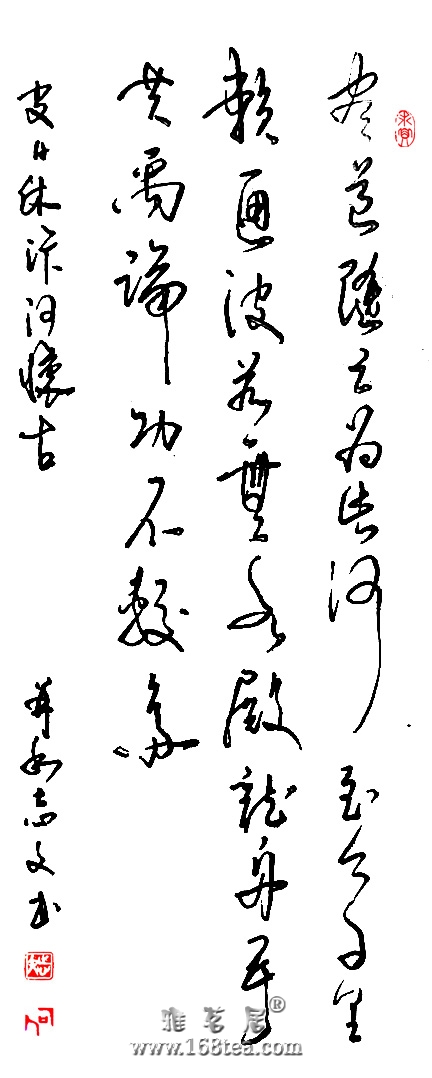 尽道隋亡为此河 至今千里
賴通波若無水殿龍舟事
共禹論功不較多
皮日休汴河懷古
志文书
雅茗居®
www.168tea.com